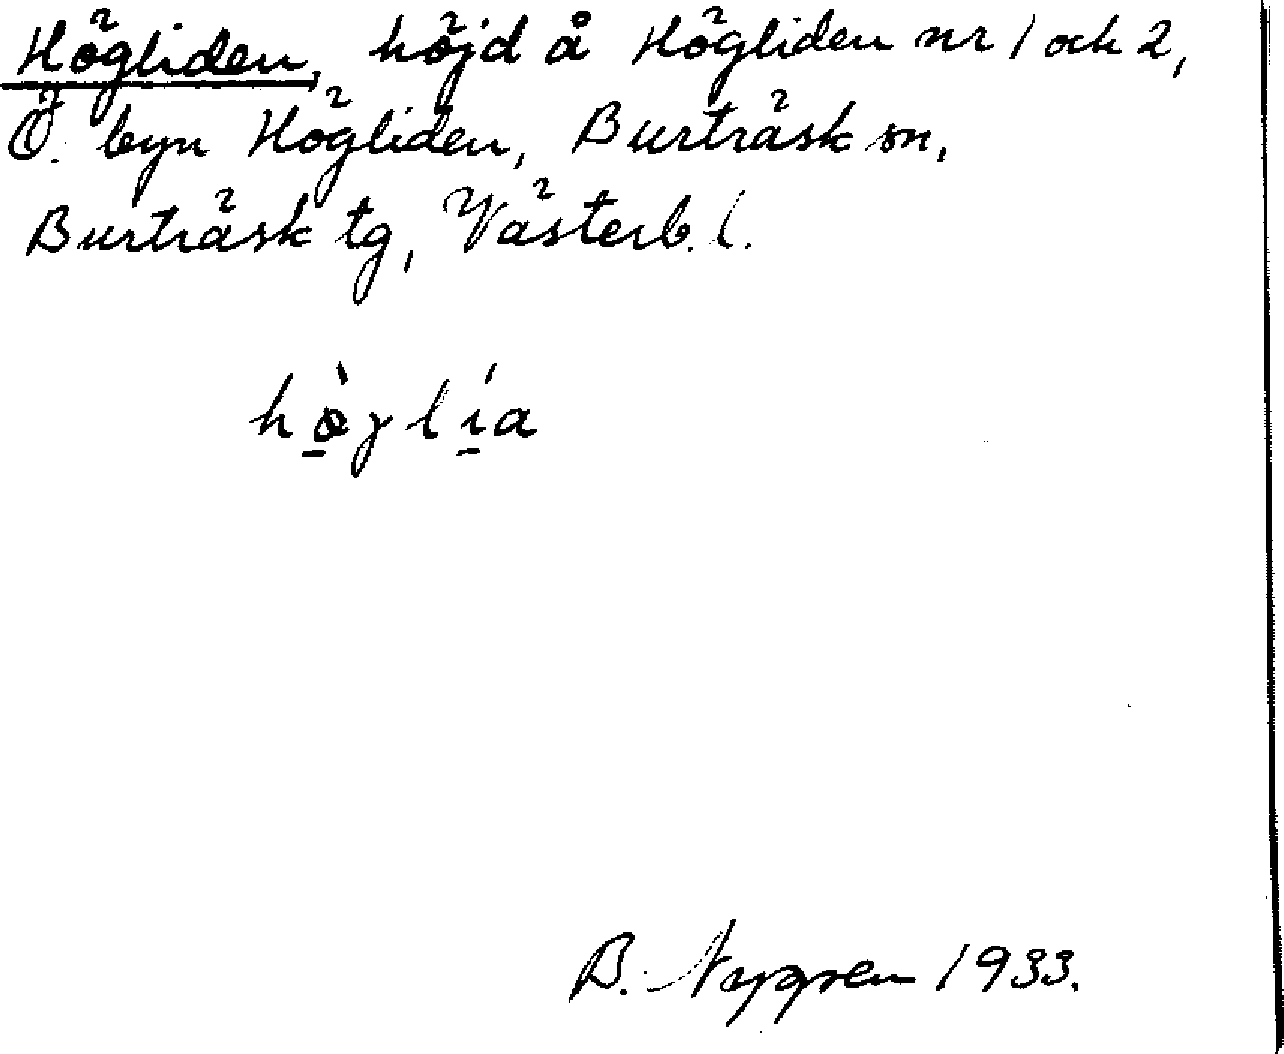 Högliden, höjd å Högliden nr 1 och 2,
Ö. byn Högliden, Burträsk sn,
Burträsk tg, Västerb. l.
hø̱̀glí̱a
B. Nygren 1933.